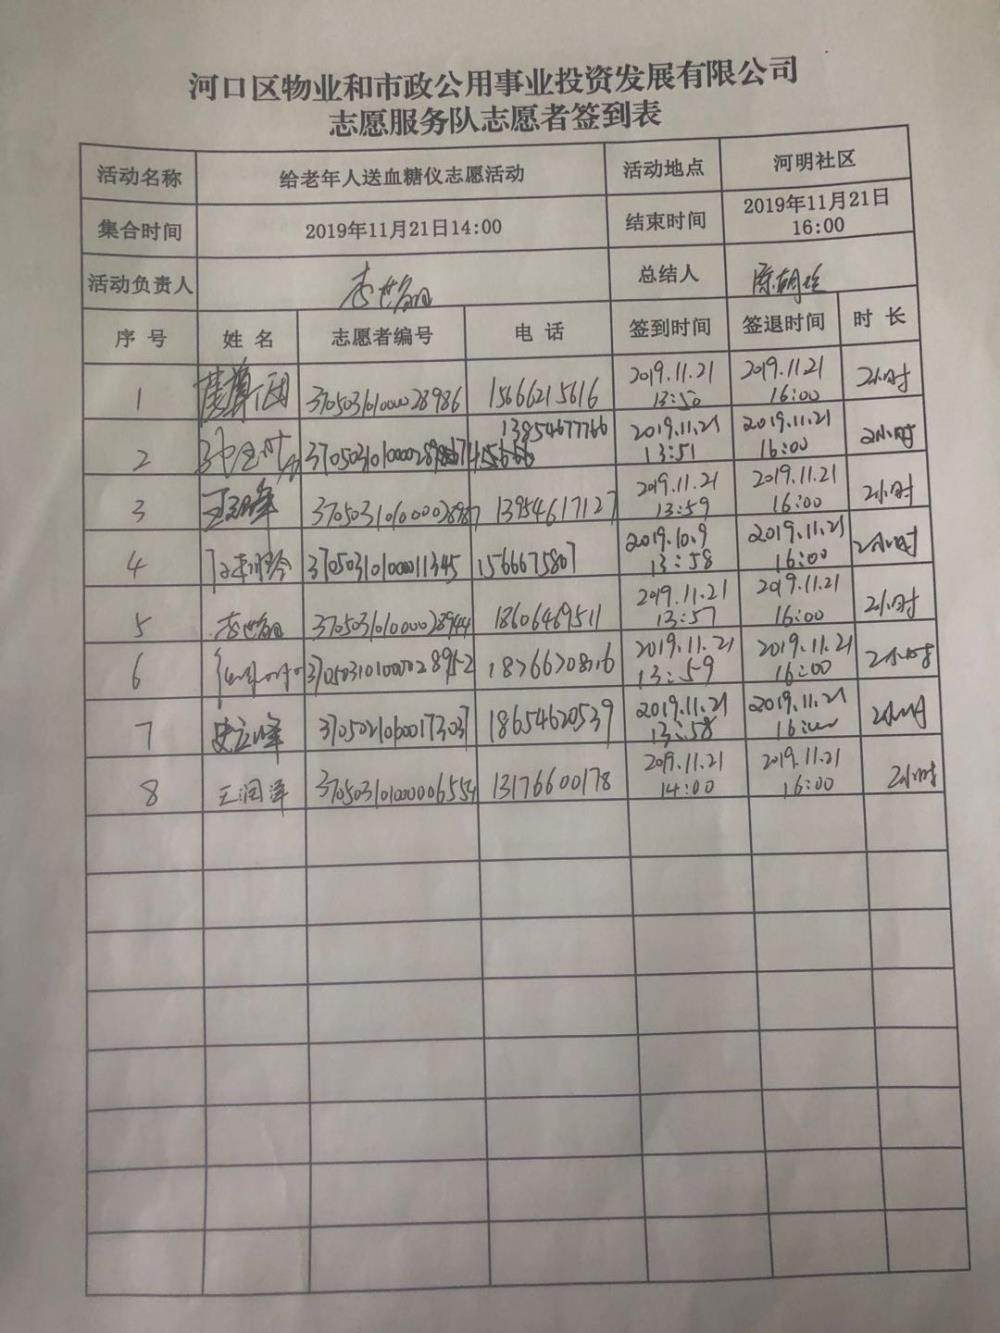 河口区物业和市政公用事业投资发展有限公司
志愿服务队志愿者签到表
活动名称 给老年人送血糖仪志愿活动 活动地点 河明社区
集合时间 2019年11月21日14:00 结束时间 2019年11月21日
16:00
活动负责人 总结人
序号 姓名 志愿者编号 电话 签到时间 签退时间 时长
1 37050310100028986 15666215616 2019.11.21 2019.11.21 2小时
13:50 16:00
13854677766
2 2019.11.21 2019.11.21 2小时
13:51 16:00
3 13954617127 2019.11.21 2019.11.21 2小时
13:59 16:00
4 3705031010011345 1566675807 2019.10.9 2019.11.21 2小时
13:58 16:00
5 370503101000028944 18606469511 2019.11.21 2019.11.21 2小时
13:57 16:00
6 18766708816 2019.11.21 2019.11.21 2小时
13:59 16:00
7 史立峰 18654620539 2019.11.21 2019.11.21 2小时
13:58 16:00
8 王润泽 370503101000006554 13176600178 2019.11.21 2019.11.21 2小时
14:00 16:00